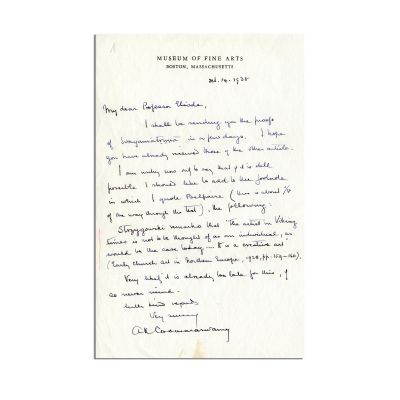 MUSEUM OF FINE ARTS
BOSTON, MASSACHUSETTS
Oct. 14. 1938
My dear Professor Eliade,
I shall be sending you the proofs
of Svayamatrnna in a few days. I hope
you have already received those of the other article.
I am writing now only to say that if it is still
possible I should like to add to the footnote
in which I quote (this is about 7/8
of the way through the text), the following:
Strzygowski remarks that "the artist in Viking
times is not to be thought of as an individual, as
would be the case today... It is a creative art"
(Early church art in Northern Europe, 1928, pp. 159-160).
Very likely it is already too late for this, if
so never mind.
with kind regards
Very sincerely
A K Coomaraswamy